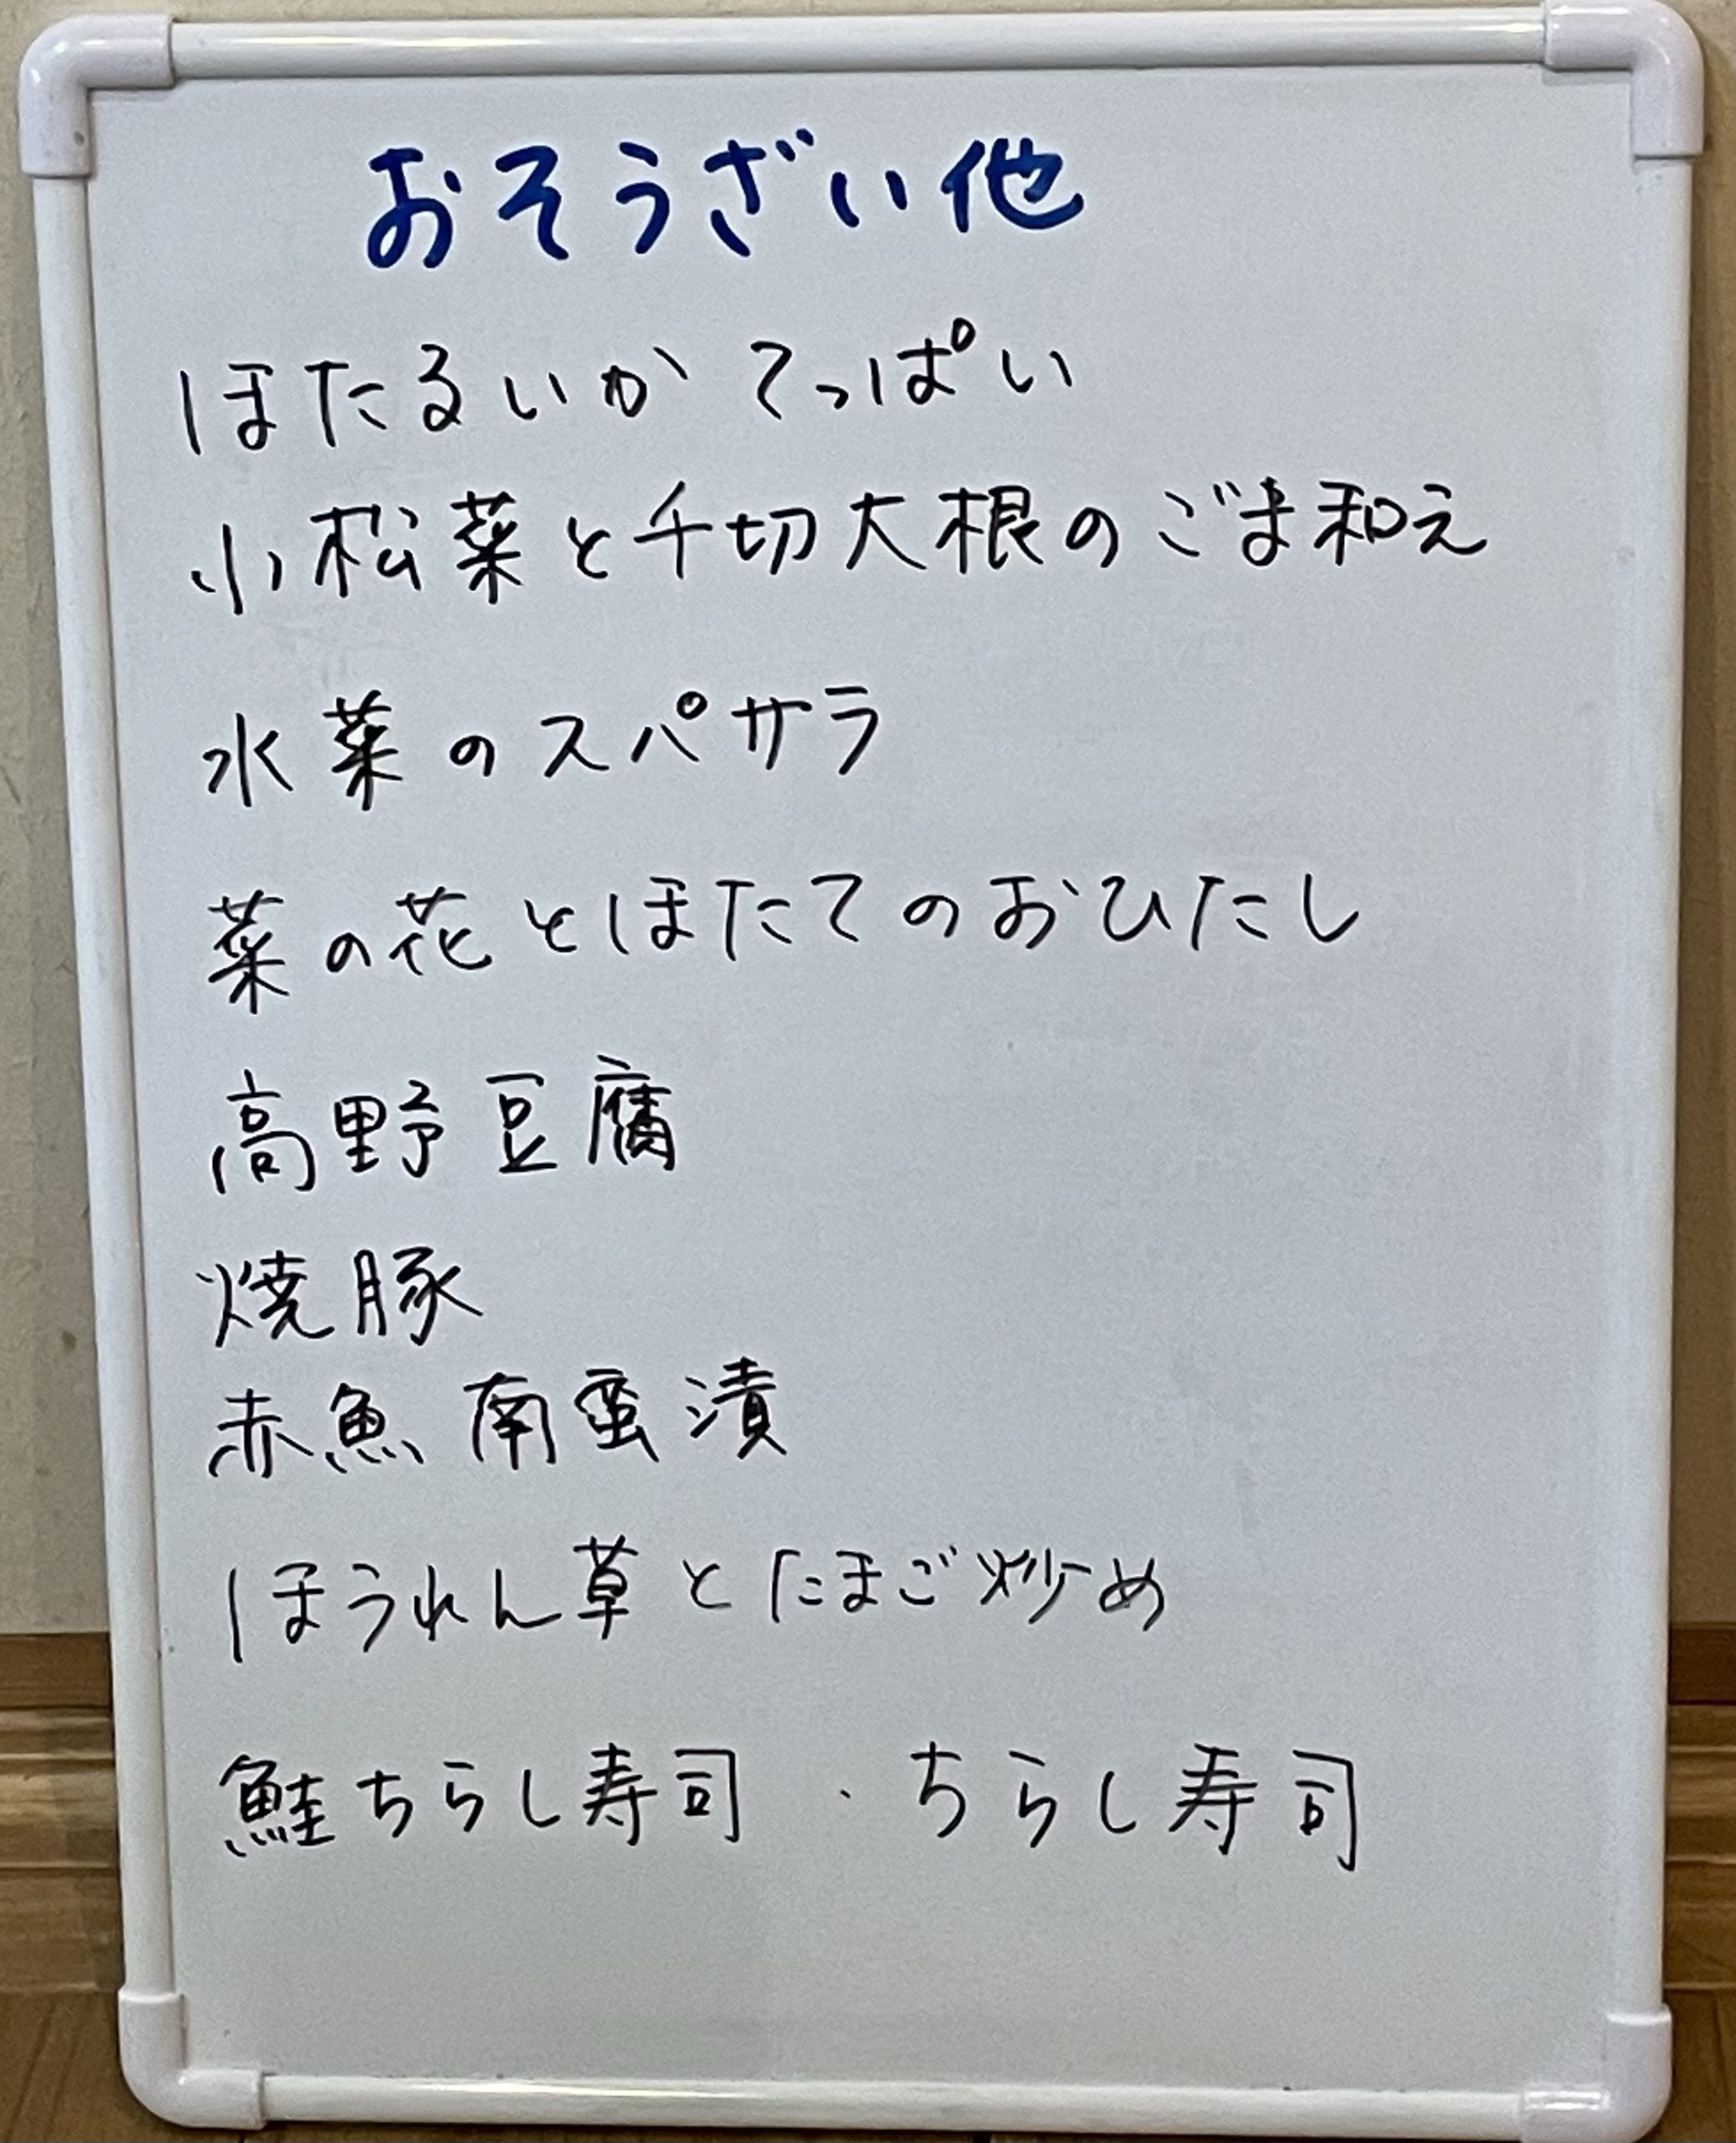 おそうざい他
ほたるいか てっぱい
小松菜と千切大根のごま和え
水菜のスパサラ
菜の花とほたてのおひたし
高野豆腐
焼豚
赤魚南蛮漬
ほうれん草とたまご炒め
鮭ちらし寿司 ・ ちらし寿司